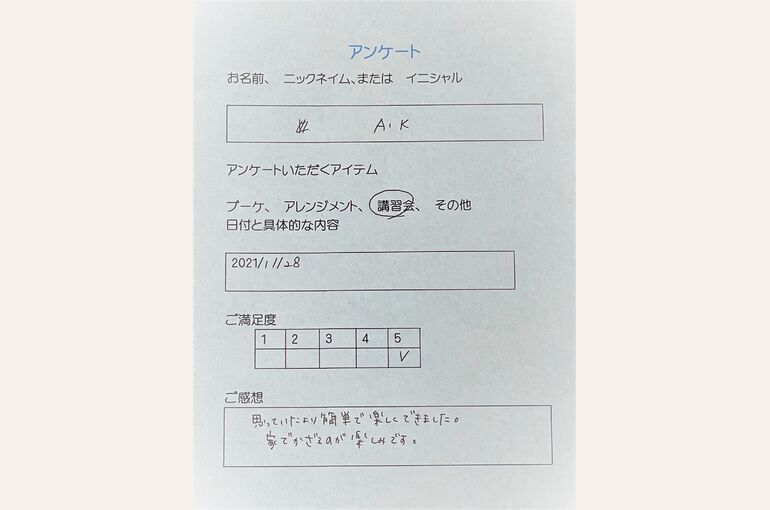 アンケート
お名前、 ニックネイム、または イニシャル
A. K
アンケートいただくアイテム
ブーケ、 アレンジメント、 講習会、 その他
日付と具体的な内容
2021/11/28
ご満足度
1 2 3 4 5
V
ご感想
思っていたより簡単で楽しくできました。
家でかざるのが楽しみです。